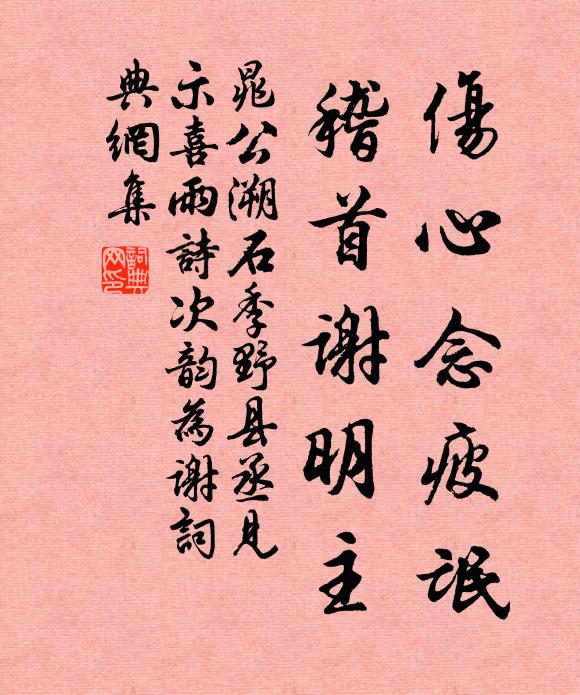 傷心念疲氓
稽首謝明主
晁公溯石季野县丞見
示喜雨詩次韵為謝詞
典網集
詞典
网印